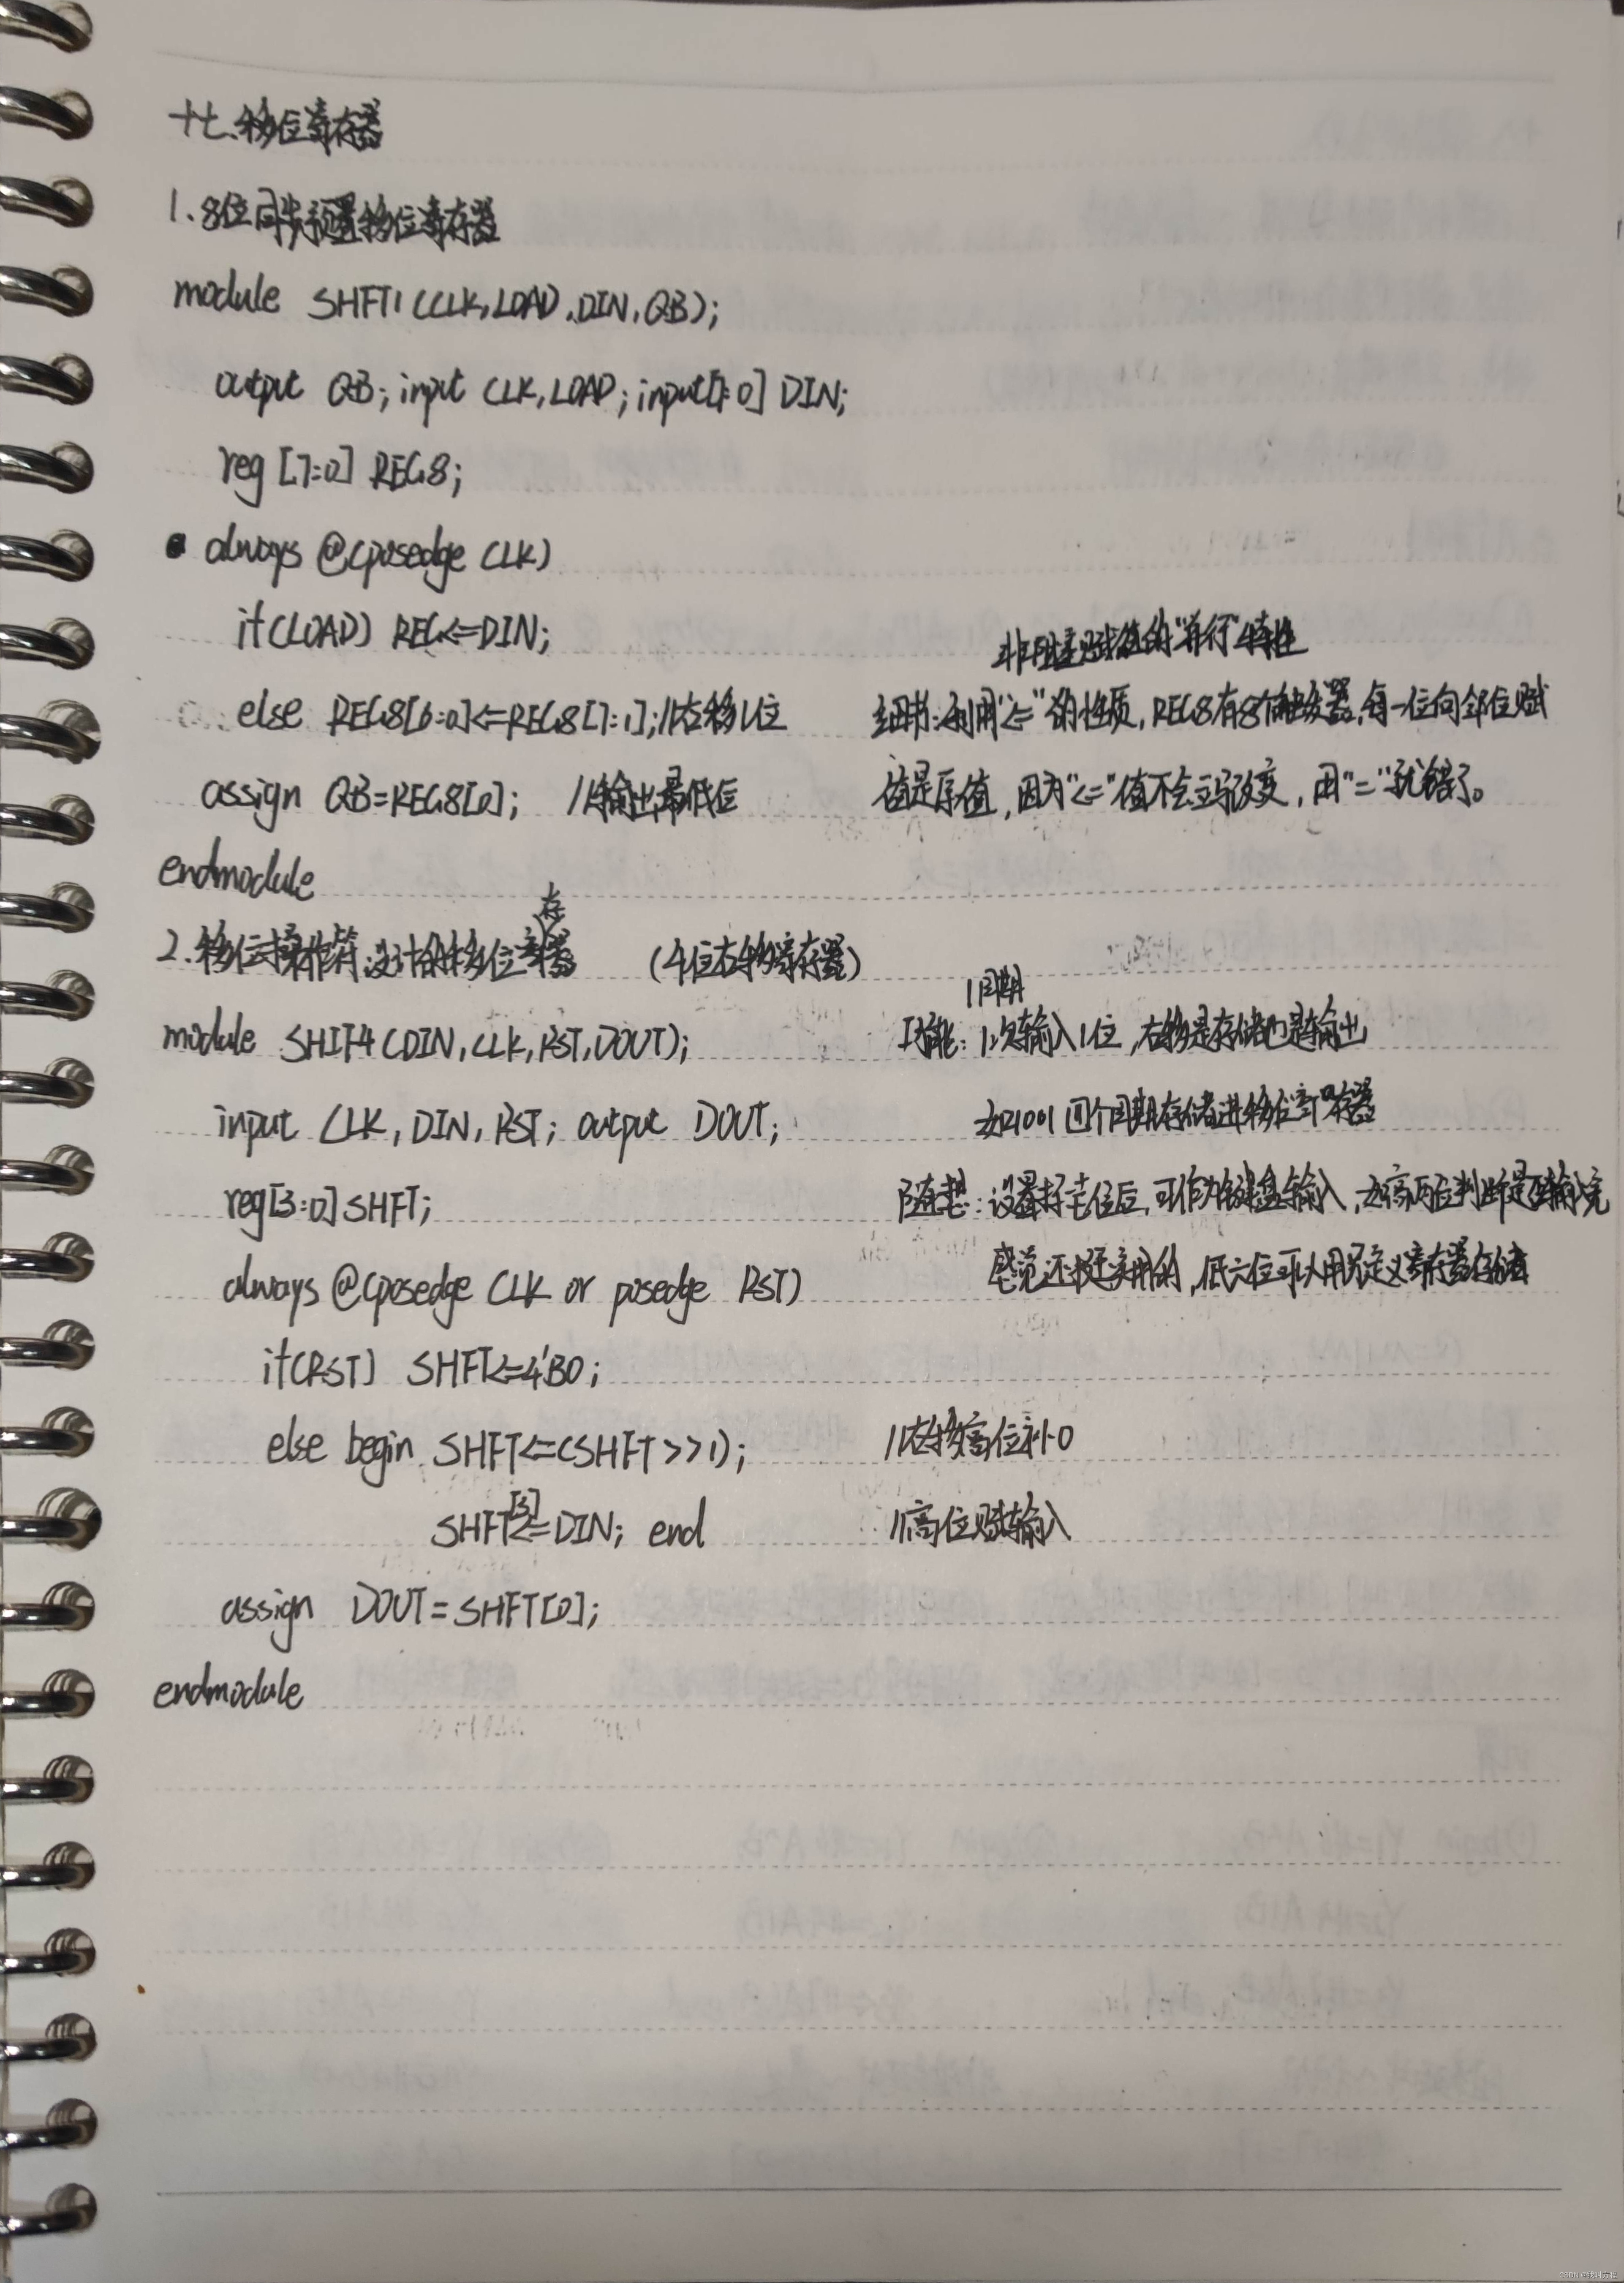 十七、移位寄存器
1、8位同步预置移位寄存器
module SHFT1(CLK,LOAD,DIN,QB);
output QB;input CLK,LOAD;input[7:0] DIN;
reg [7:0] REG8;
always @(posedge CLK)
if(LOAD) REG<=DIN;
非阻塞赋值的"并行"特性
else REG8[6:0]<=REG8[7:1];//右移1位 细节:利用"<="的性质,REG8有8个触发器,每一位向邻位赋
assign QB=REG8[0]; //输出最低位 值是原值,因为"<="值不会立马改变,用"="就错了。
endmodule
2.移位操作符设计的移位寄存器 (4位右移寄存器)
1周期
module SHIF4(DIN,CLK,RST,DOUT); 功能:1次输入1位,右移是存储也是输出
input CLK,DIN,RST; output DOUT; 如1001四个周期存储进移位寄存器
reg[3:0]SHFT; 随想:设置标志位后,可作为键盘输入,如高两位判断是否输入完
always @(posedge CLK or posedge RST) 感觉还挺实用的,低六位可以用另定义寄存器存储
if(RST) SHFT<=4'B0;
else begin SHFT<=(SHFT>>1); //右移高位补0
SHFT[3]<=DIN; end //高位赋输入
assign DOUT=SHFT[0];
endmodule